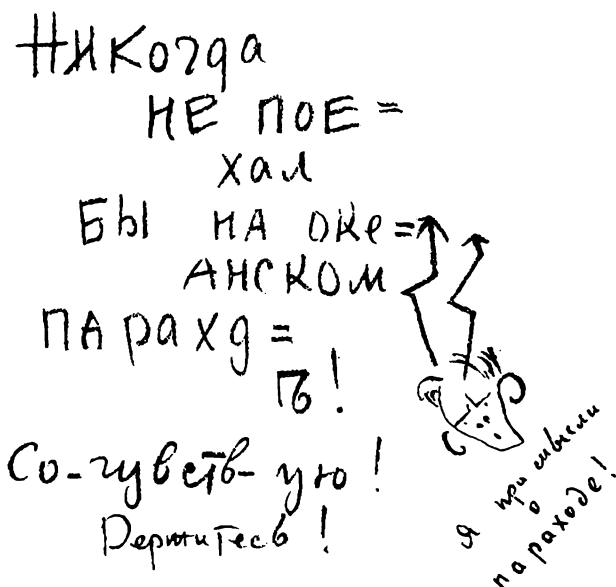 НИКогда
НЕ ПОЕ=
хал
БЫ НА ОКе=
АНСКОМ
ПАРаХд=
Ѣ!
Со-чувств-ую!
Держитесь!
Я при мысли
о
параходе!